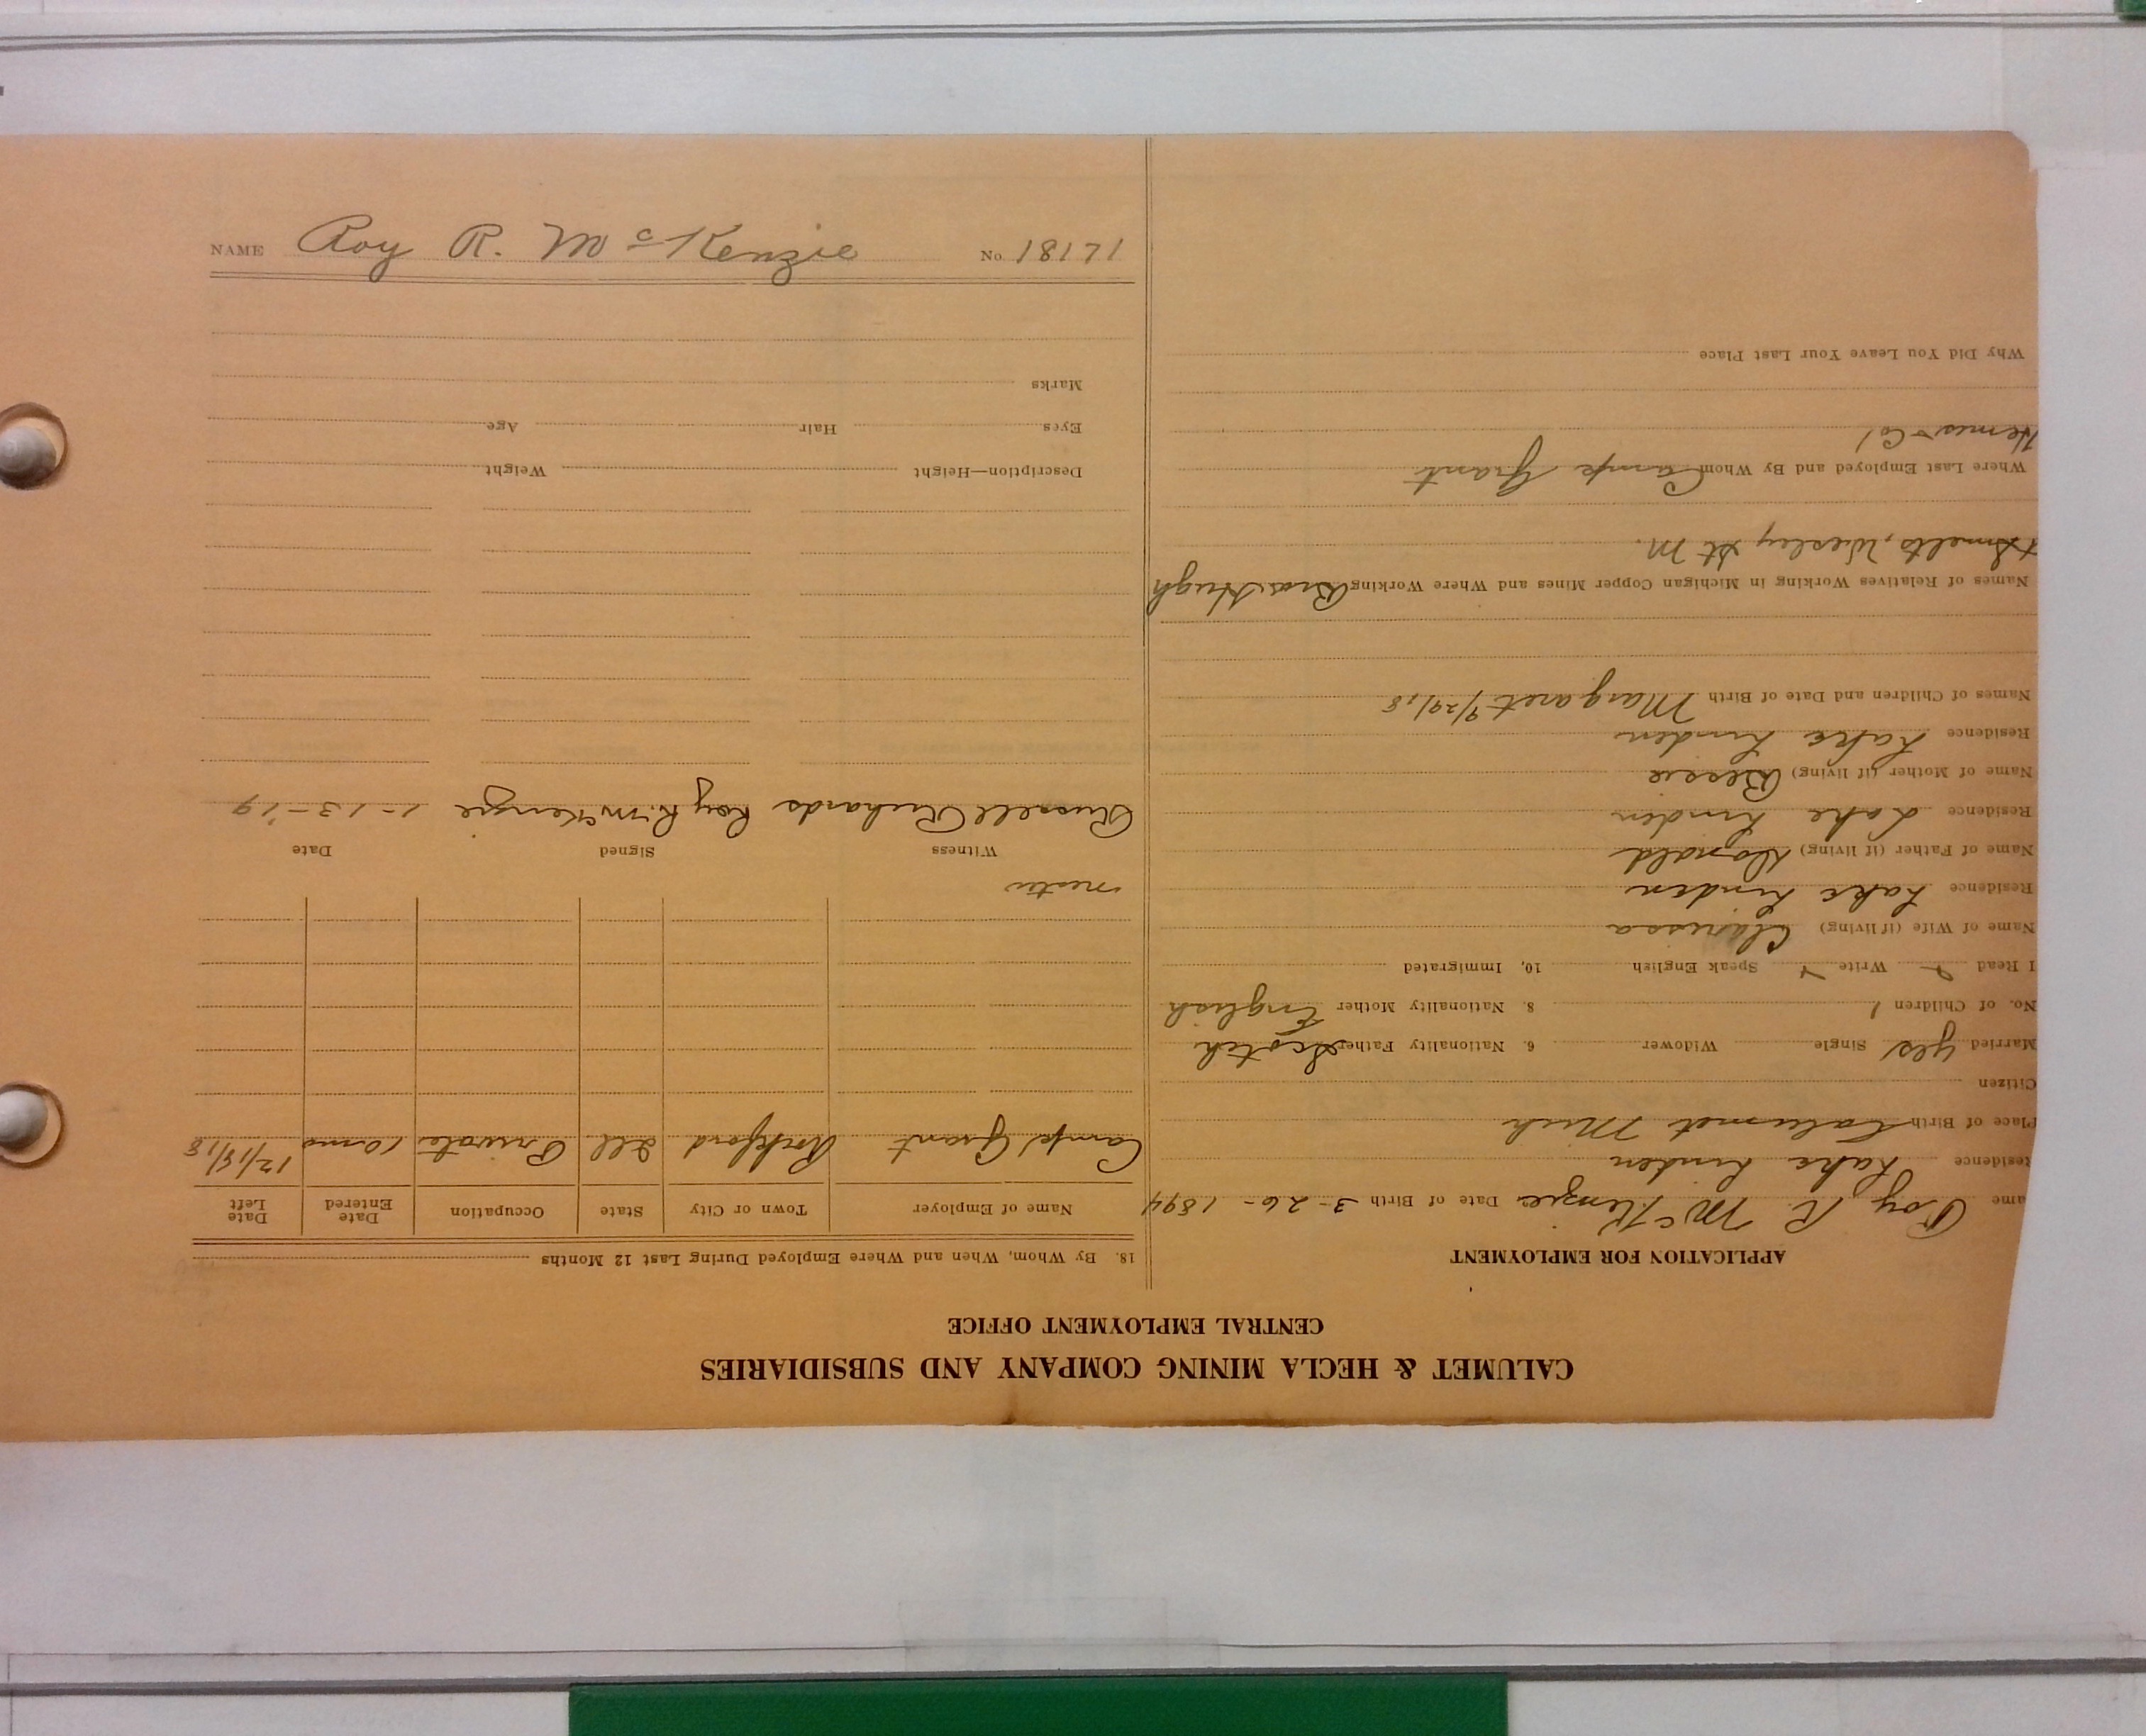 CALUMET & HECLA MINING COMPANY AND SUBSIDIARIES
CENTRAL EMPLOYMENT OFFICE
APPLICATION FOR EMPLOYMENT
ame Roy R. McKenzie Date of Birth 3-26-1894
Residence Lake Linden
Place of Birth Calumet Mich
Citizen
Married yes Single Widower 6. Nationality Father Scotch
No. of Children 1 8. Nationality Mother English
I Read Write Speak English 10, Immigrated
Name of Wife (if living) Clarissa
Residence Lake Linden
Name of Father (if living) Donald
Residence Lake Linden
Name of Mother (if living) Bessie
Residence Lake Linden
Names of Children and Date of Birth Margaret 9/29/18
Names of Relatives Working in Michigan Copper Mines and Where Working Bro. Hugh
Smelts, Wesley St M.
Where Last Employed and By Whom Camp Grant
Why Did You Leave Your Last Place
18. By Whom, When and Where Employed During Last 12 Months
Name of Employer Town or City State Occupation Date Entered Date Left
Camp Grant Rockford Ill Private 10 mo 12/18/18
Witness Signed Date
Russell Richards Roy R. McKenzie 1-13-'19
Description—Height Weight
Eyes Hair Age
Marks
NAME Roy R. McKenzie No. 18171